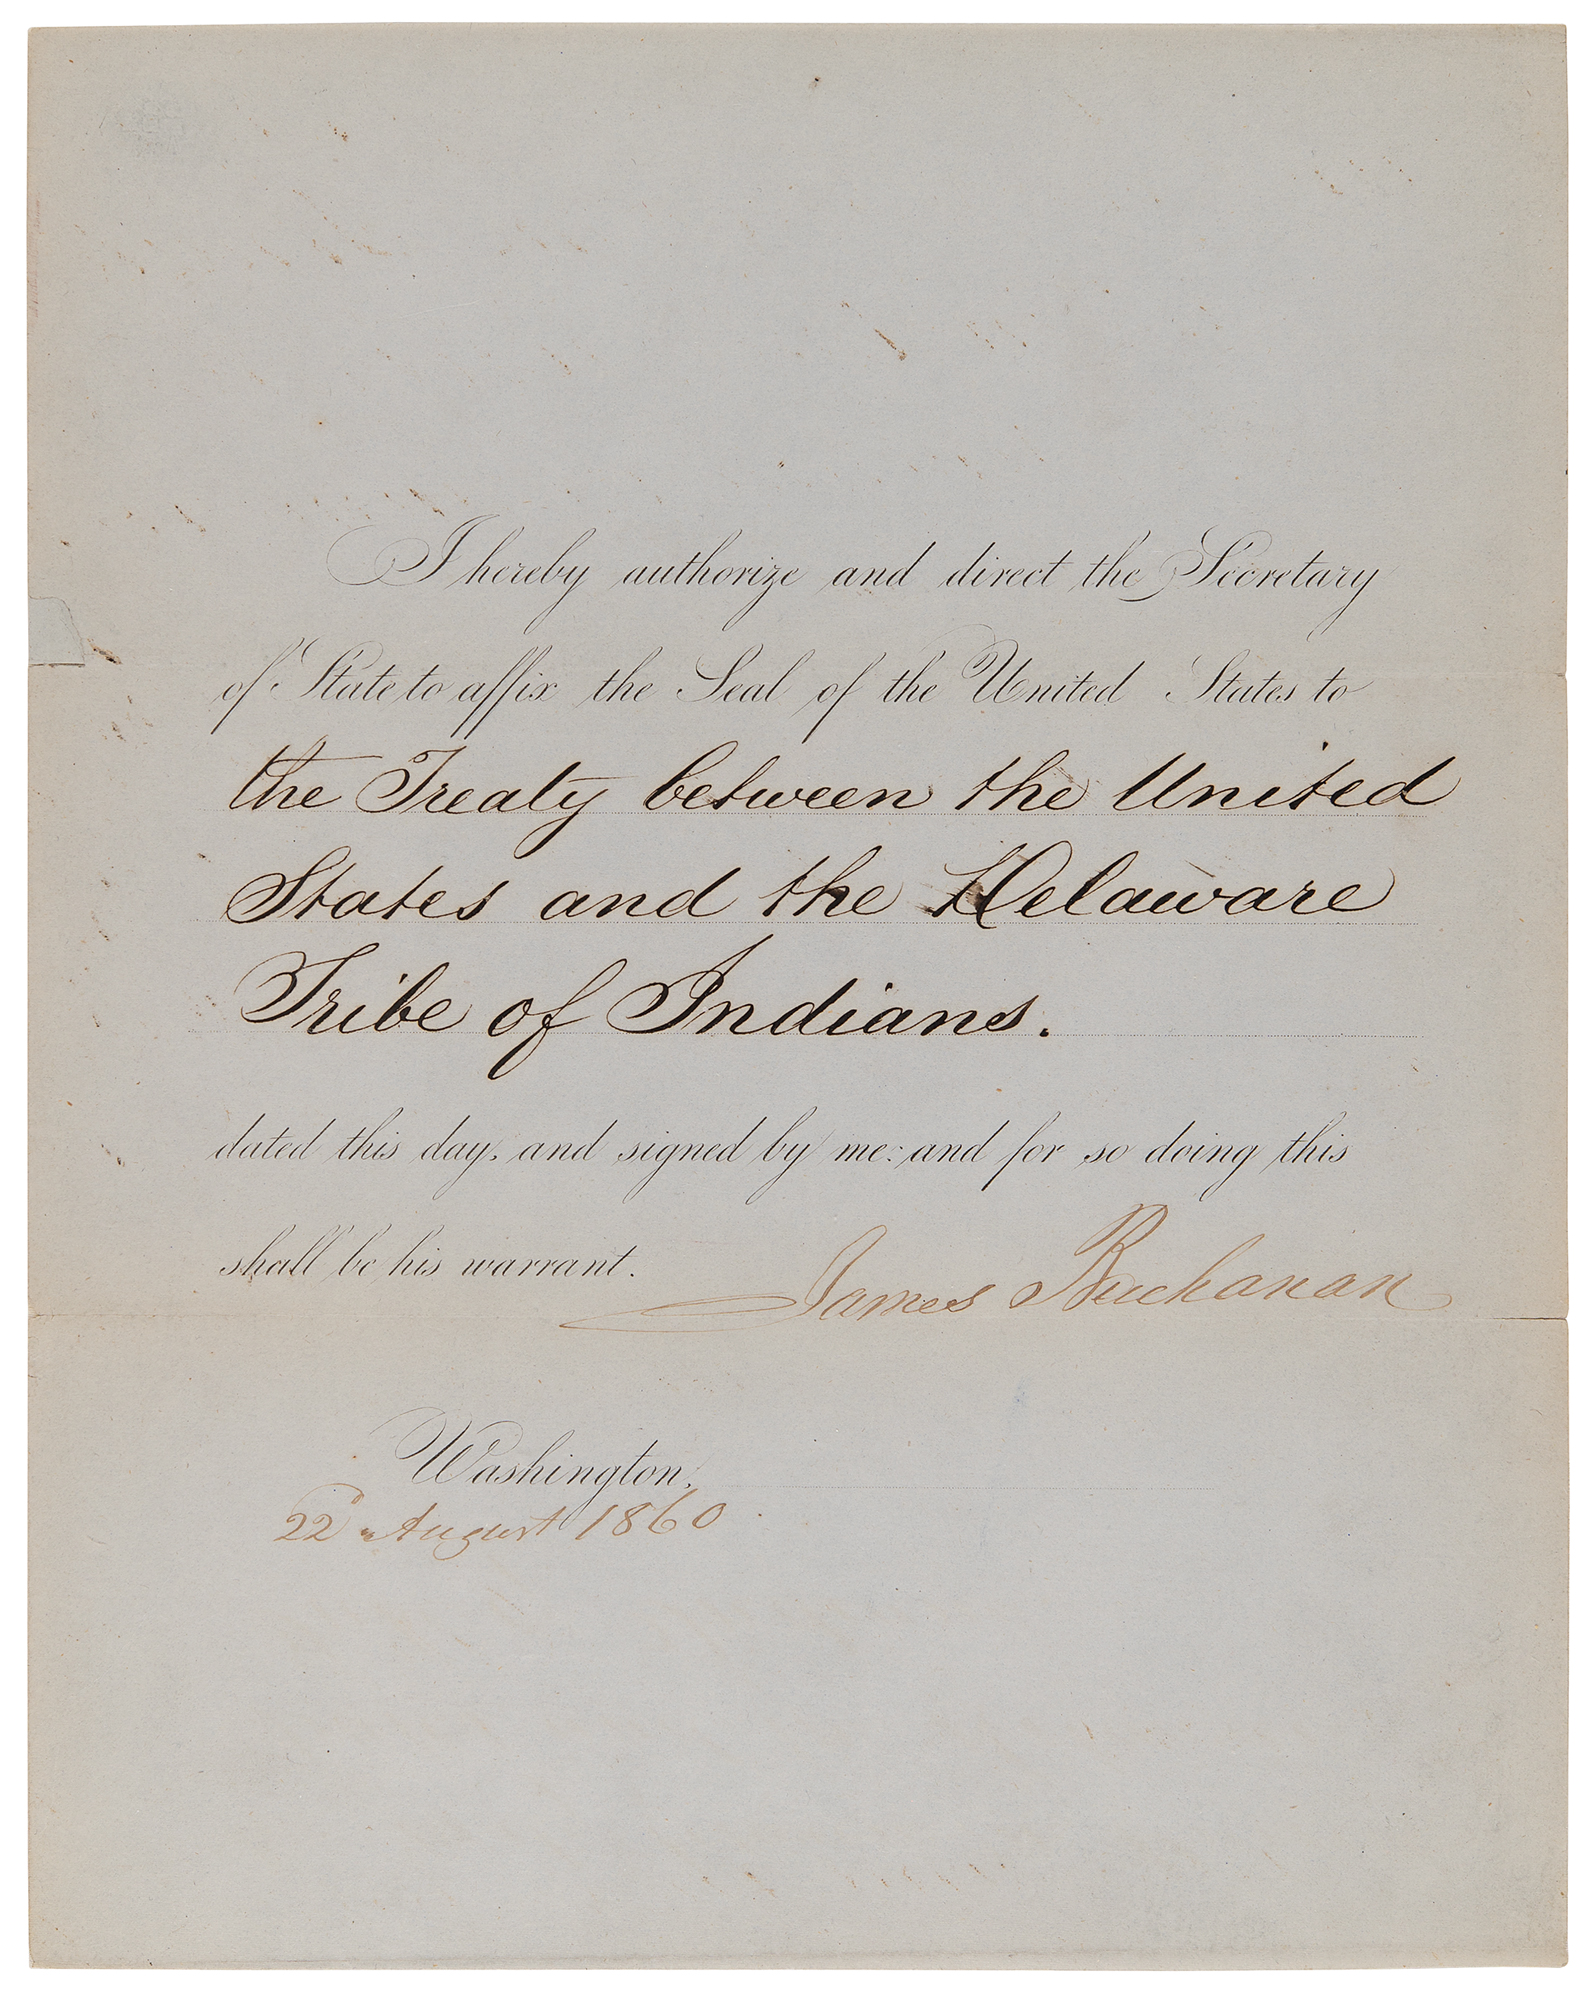 I hereby authorize and direct the Secretary
of State to affix the Seal of the United States to
the Treaty between the United
States and the Delaware
Tribe of Indians.
dated this day, and signed by me: and for so doing this
shall be his warrant.
James Buchanan
Washington,
22d August 1860